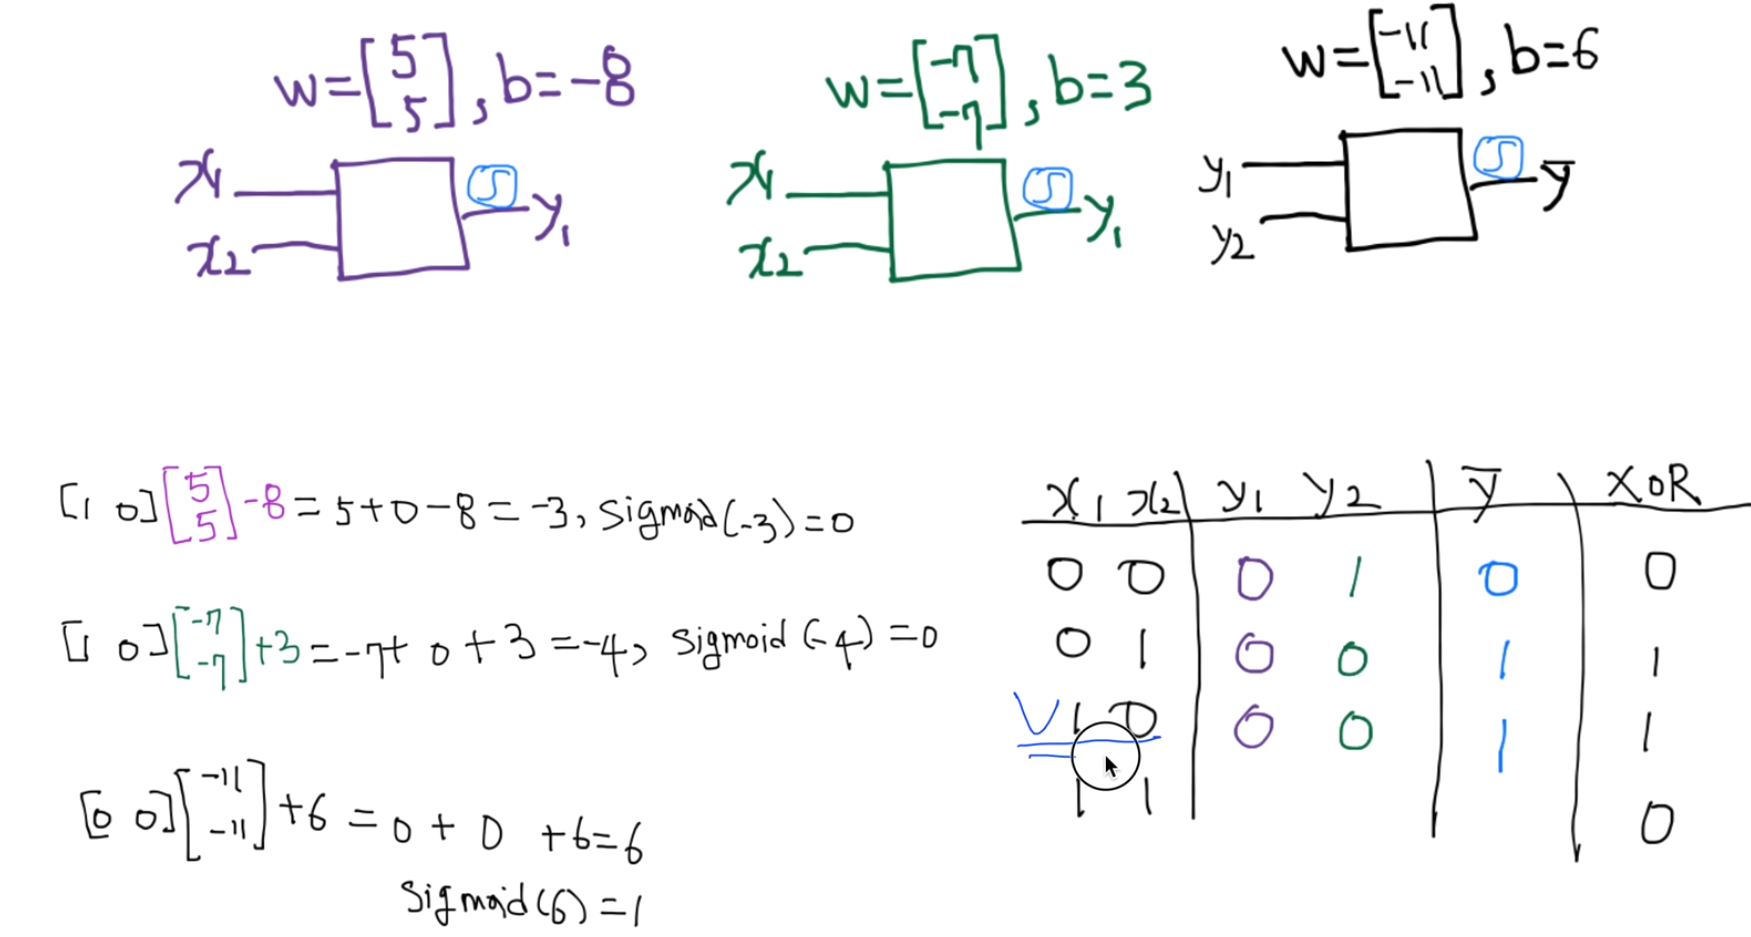 w=[5 5], b=-8
x1
x2
y1
w=[-7 -7], b=3
x1
x2
y1
w=[-11 -11], b=6
y1
y2
ȳ
[1 0][5 5]-8=5+0-8=-3, sigmoid(-3)=0
[1 0][-7 -7]+3=-7+0+3=-4, sigmoid(-4)=0
[0 0][-11 -11]+6=0+0+6=6
sigmoid(6)=1
x1 x2 y1 y2 ȳ XOR
0 0 0 1 0 0
0 1 0 0 1 1
V 1 0 0 0 1 1
1 1 0